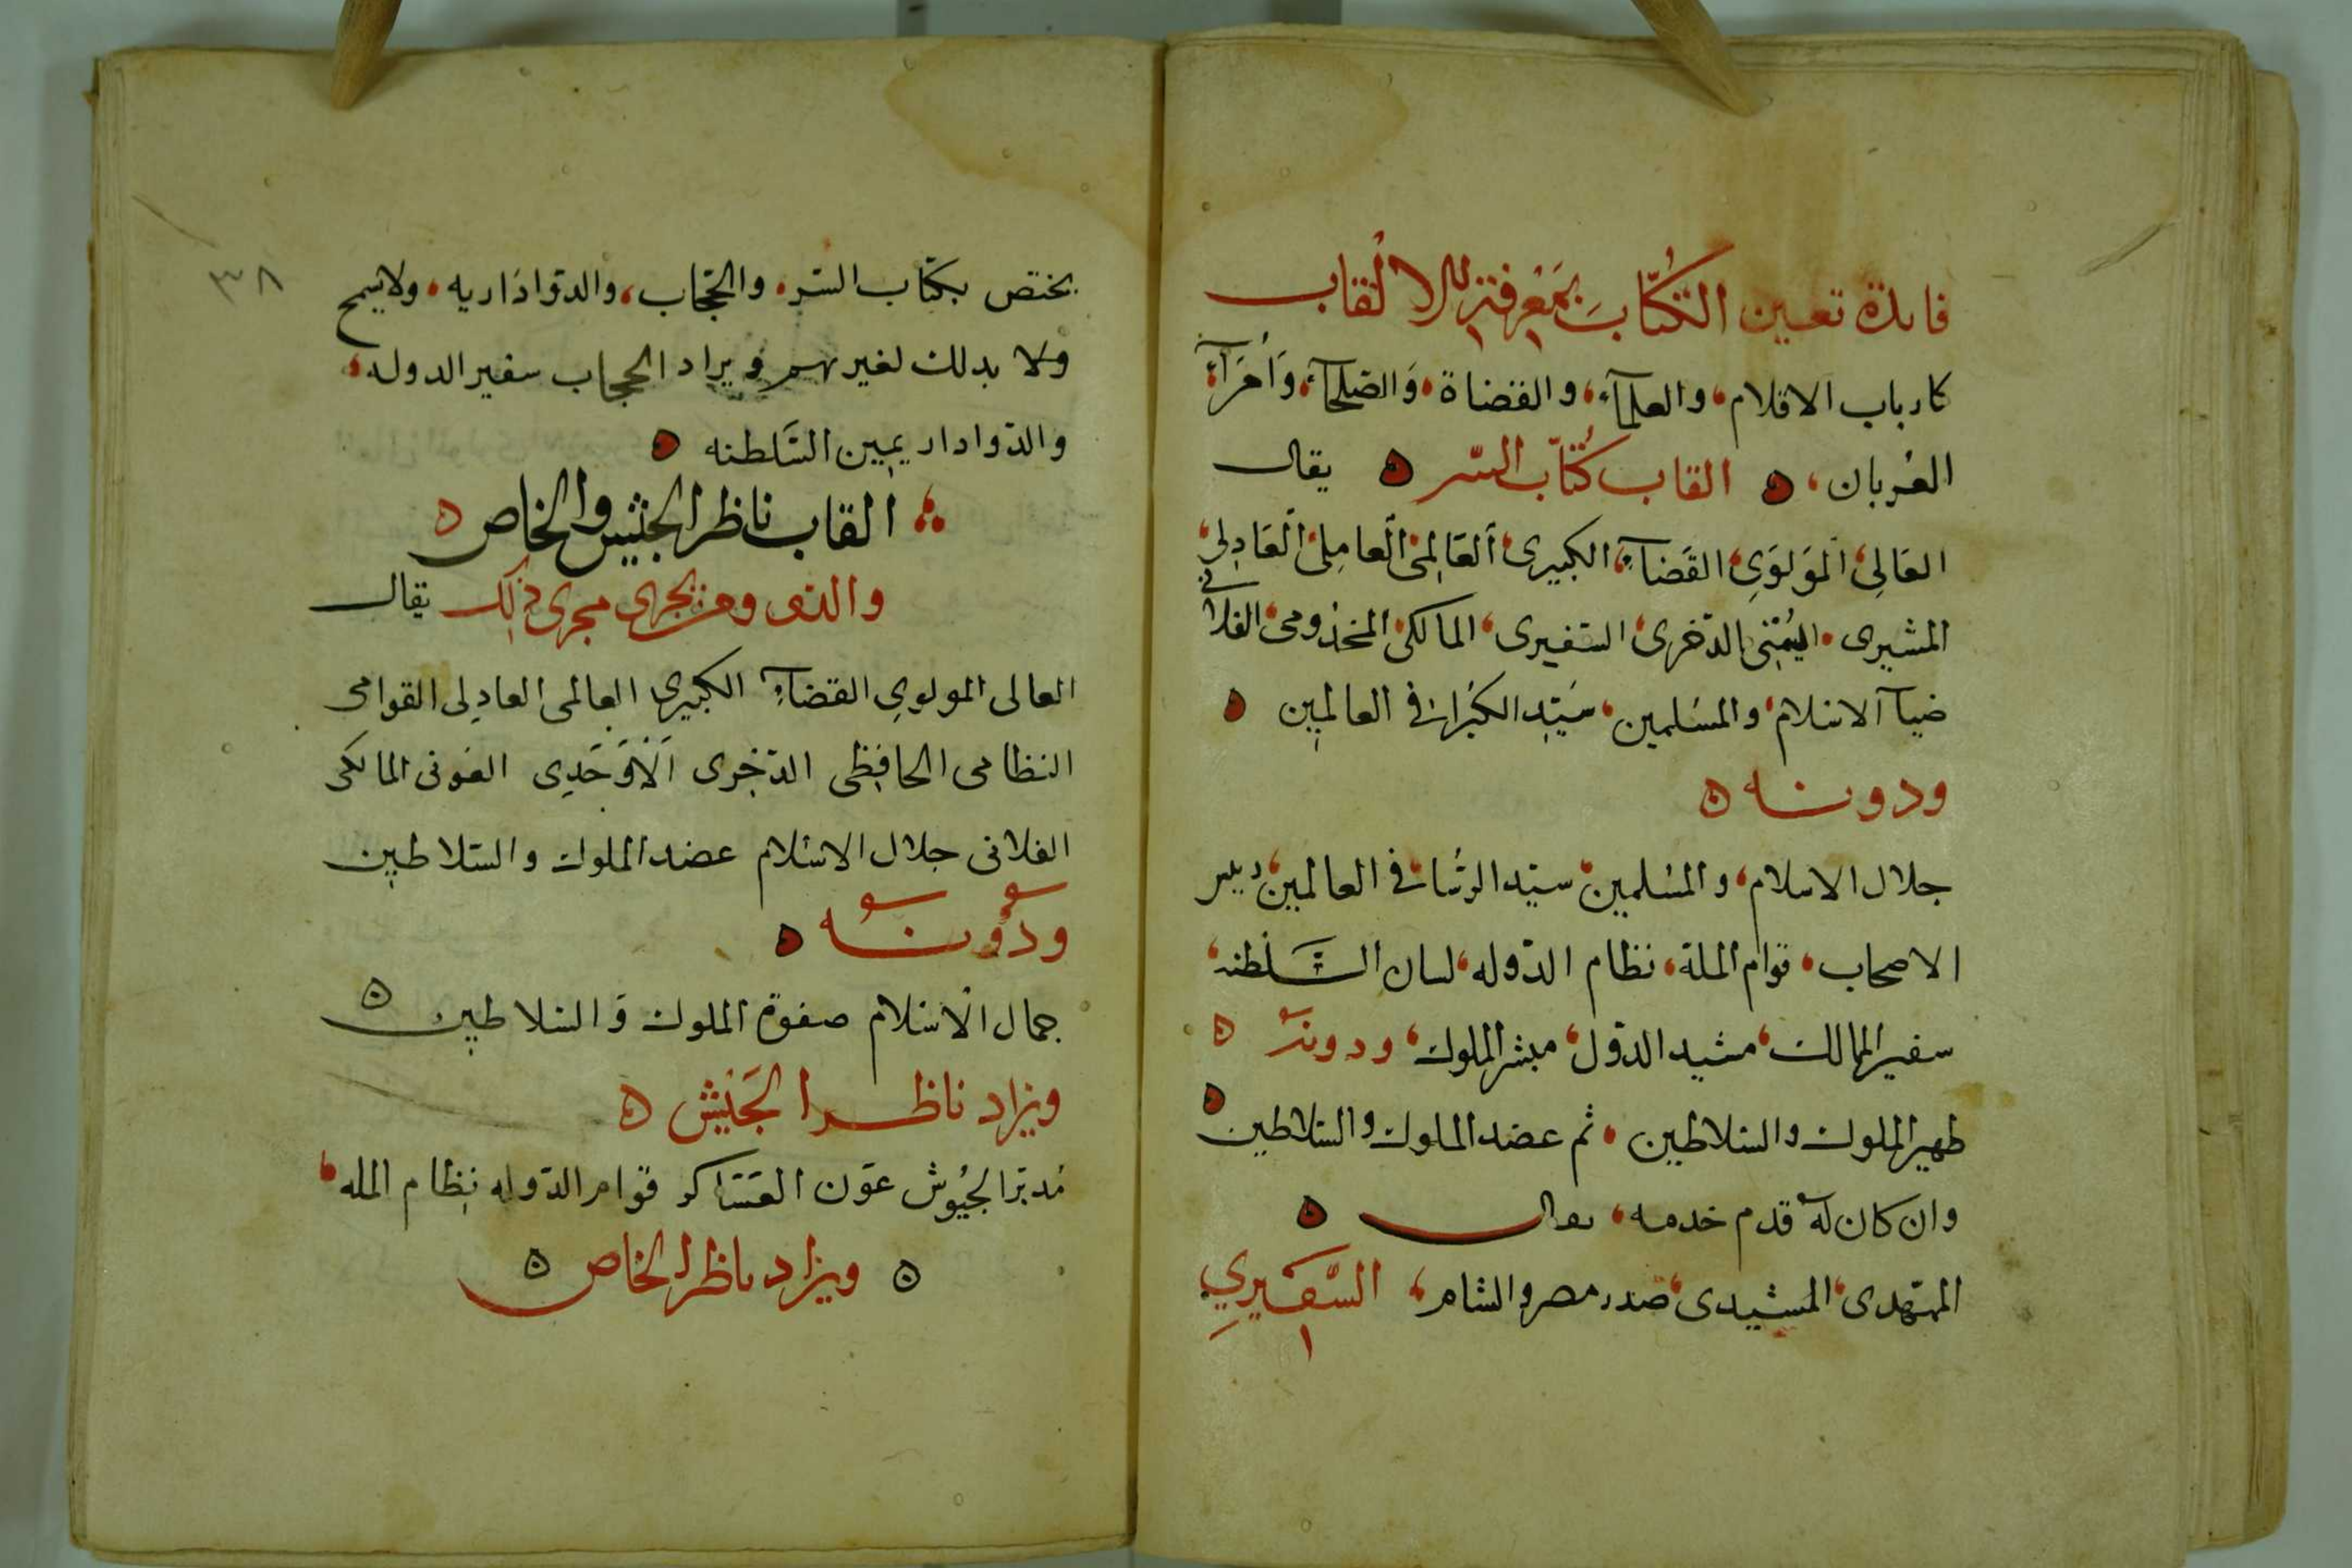 فايدة تعين الكُتّاب بمَعْرفة الالْقاب
كارباب الاقلام، والعلمآء، والقضاة، وَالصّلحآء، وَأمَرَآء
العُربان، ه القاب كُتّاب السّر ه يقال
العَالِى، المَوَلَوِى، القَضَاءِ، الكبيرى، العَالِمى، العامِلى، العَادِلى،
المشيرى، اليُمْنى، الذخرى، السّفيرى، المالكى، المخدومى، الفلانى
ضيآ الاسلام، والمسلمين، سَيّد الكُبَرا فى العالمين ه
ودونه ه
جلال الاسلام، والمسلمين، سيّد الرؤسا فى العالمين،
الاصحاب، قوام الملة، نظام الدّوله، لسان السَّلطنه،
سفير الممالك، مشيد الدوّل، مبشر الملوك، ودونه ه
ظهير الملوك والسّلاطين، ثم عضد الملوك والسّلاطين ه
وان كان له قدم خدمه، يقال ه
الممهّدى، المشيدى، صدر مصر والشام، السَّفيرِي
٣٨
يختص بكتّاب السّر، والحجّاب، والدوّاداريه، ولا يسمح
ولا بذلك لغيرهم ويزاد الحجاب سفير الدوله،
والدّوادار يمين السَّلطنه ه
القاب ناظر الجيش والخاص ه
والذى ومن يجرى مجرى ذلك يقال
العالى المولوى القضاءِ الكبيرى العالمى العادلى القوامى
النظامى الحافظى الذخرى الأوْحَدِى العَونى المالكى
الفلانى جلال الاسْلام عضد الملوك والسّلاطين
ودُونه ه
جمال الاسْلام صفوة الملوك وَالسّلاطين ه
ويزاد ناظر الجَيْش ه
مُدبّر الجيُوش عَوْن العَسَاكر قوام الدّوله نظام المله،
ه ويزاد ناظر الخاص ه